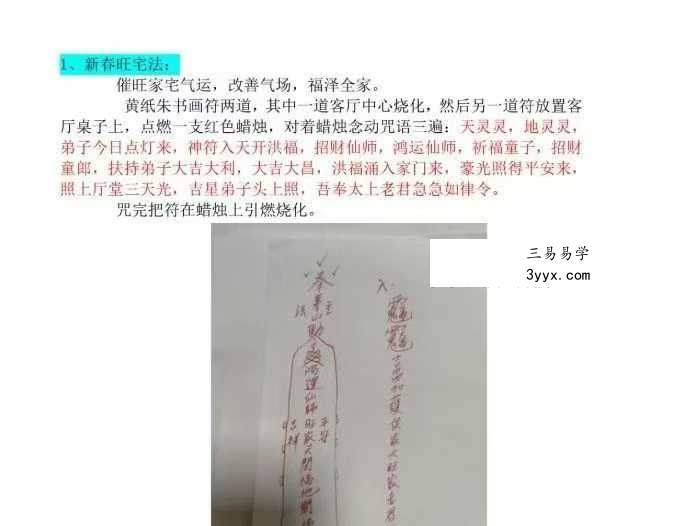 1、新春旺宅法：
催旺家宅气运，改善气场，福泽全家。
黄纸朱书画符两道，其中一道客厅中心烧化，然后另一道符放置客
厅桌子上，点燃一支红色蜡烛，对着蜡烛念动咒语三遍：天灵灵，地灵灵，
弟子今日点灯来，神符入天开洪福，招财仙师，鸿运仙师，祈福童子，招财
童郎，扶持弟子大吉大利，大吉大昌，洪福涌入家门来，豪光照得平安来，
照上厅堂三天光，吉星弟子头上照，吾奉太上老君急急如律令。
咒完把符在蜡烛上引燃烧化。
三易易学
3yyx.com
鸿運仙師
平安
吉祥